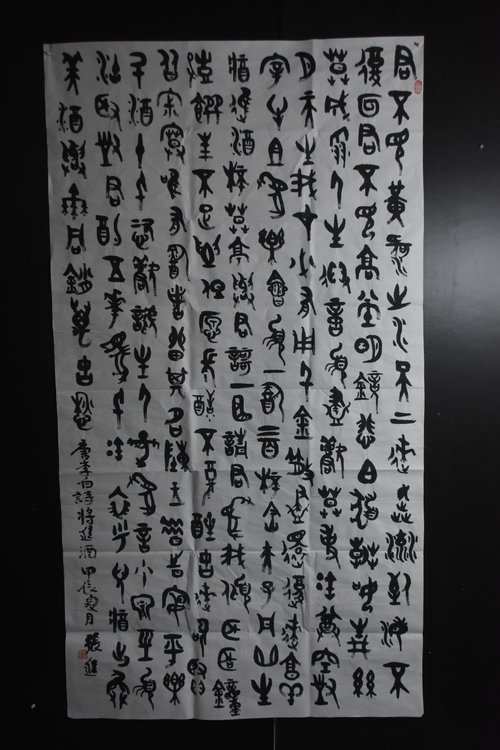 君不見黃河之水天上來奔流到海不
復回君不見高堂明鏡悲白髮朝如青絲
莫成雪人生得意須盡歡莫使金尊空對
月天生我才必有用千金散盡還復來亯羊
宰牛且為樂會須一飲三百杯岑夫子丹丘生
將進酒杯莫停與君歌一曲請君為我傾耳聽鐘
鼓饌玉不足貴但願長醉不復醒古來聖賢
皆寂寞唯有飲者留其名陳王昔時宴平樂
斗酒十千恣歡謔主人何為言少錢徑須
沽取對君酌五花馬千金裘呼兒將出換
美酒與爾同銷萬古愁 唐李白詩將進酒 甲辰夏月 張進